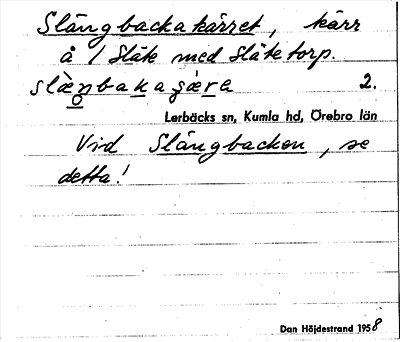 Slängbackakärret, kärr
å 1 Släte med Slätetorp.
slæ̀nbakaɕǽra 2.
Lerbäcks sn, Kumla hd, Örebro län
Vid Slängbacken, se
detta!
Dan Höjdestrand 1958